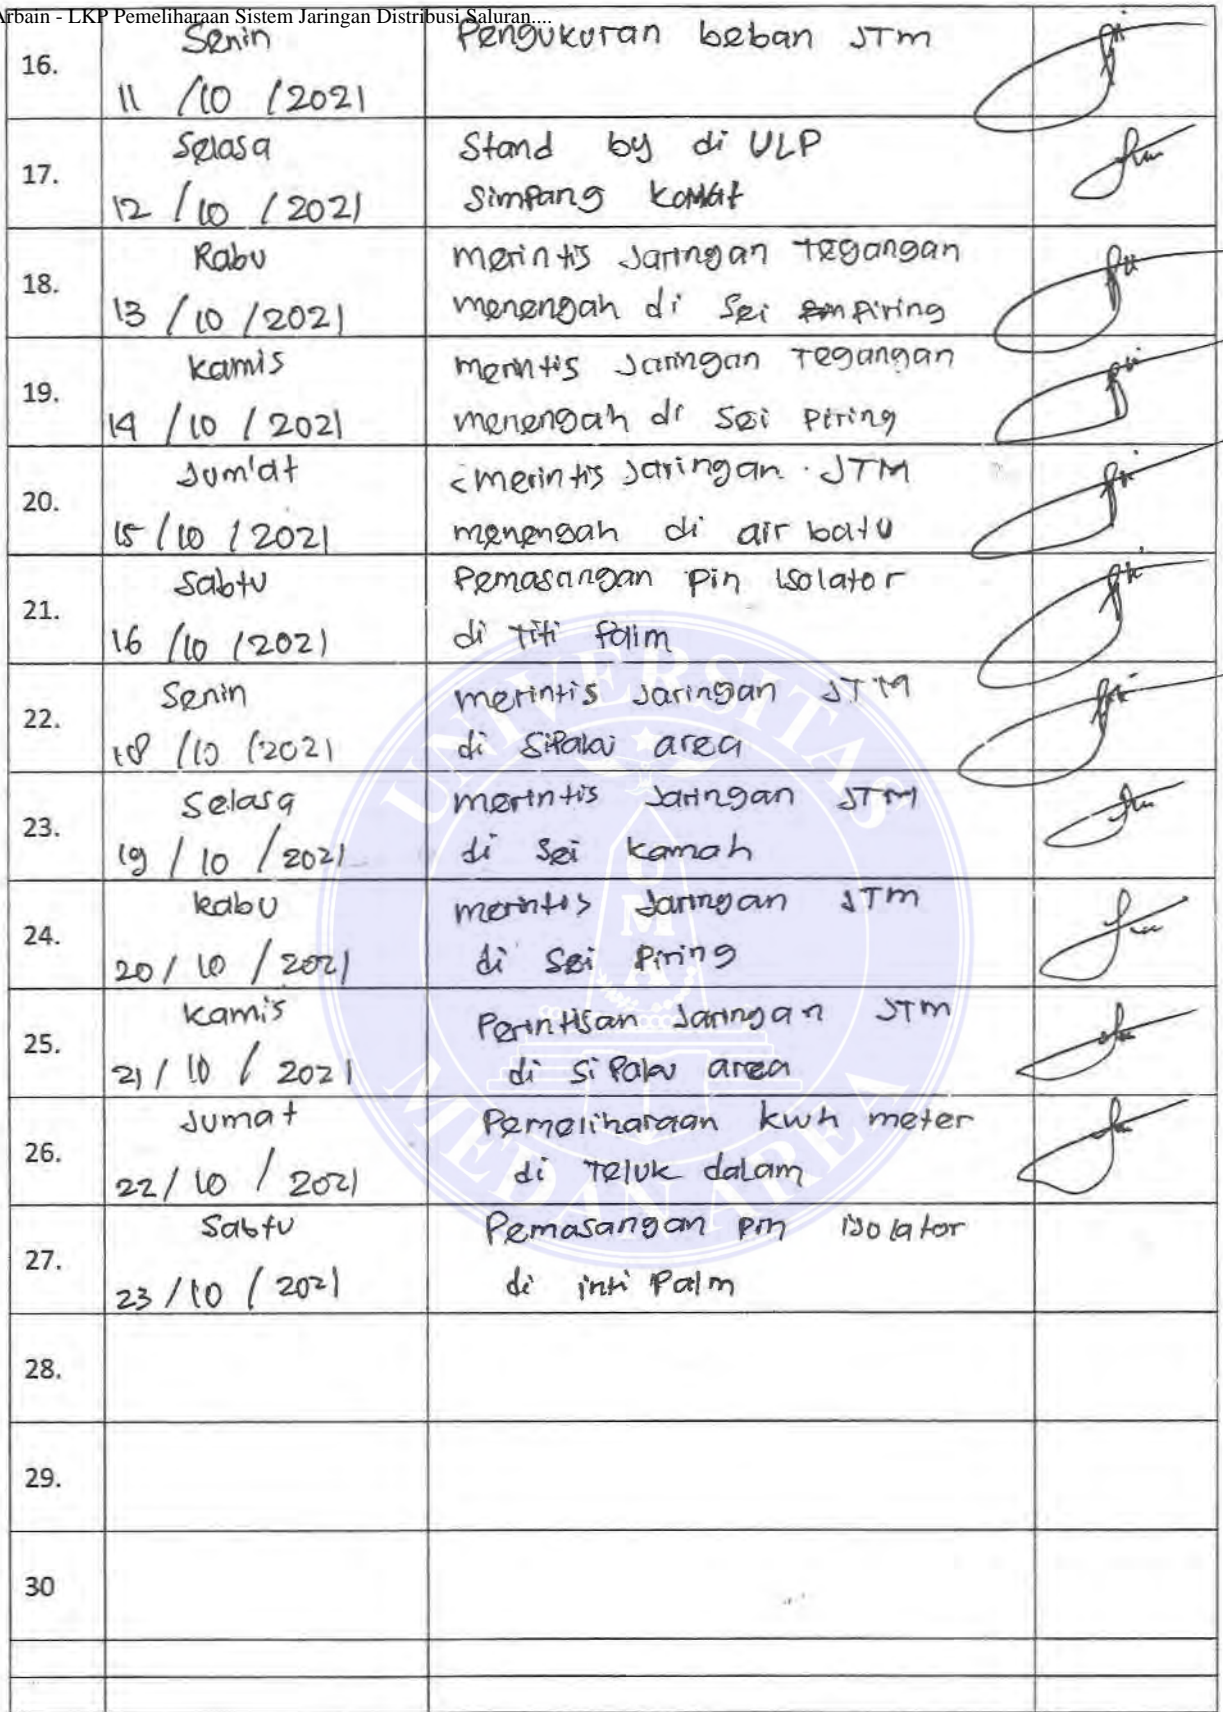 Arbain - LKP Pemeliharaan Sistem Jaringan Distribusi Saluran....
16.
Senin
11 / 10 / 2021
Pengukuran beban JTM
17.
Selasa
12 / 10 / 2021
Stand by di ULP
Simpang
18.
Rabu
13 / 10 / 2021
merintis Jaringan Tegangan
menengah di Sei Piring
19.
Kamis
14 / 10 / 2021
merintis Jaringan Tegangan
menengah di Sei Piring
20.
Jum'at
15 / 10 / 2021
merintis Jaringan JTM
menengah di air batu
21.
Sabtu
16 / 10 / 2021
Pemasangan Pin Isolator
di Titi
22.
Senin
18 / 10 / 2021
merintis Jaringan JTM
di area
23.
Selasa
19 / 10 / 2021
merintis Jaringan JTM
di Sei kamah
24.
Rabu
20 / 10 / 2021
merintis Jaringan JTM
di Sei Piring
25.
Kamis
21 / 10 / 2021
Perintisan Jaringan JTM
di area
26.
Jumat
22 / 10 / 2021
Pemeliharaan kwh meter
di Teluk dalam
27.
Sabtu
23 / 10 / 2021
Pemasangan pin isolator
di inti Palm
28.
29.
30
UNIVERSITAS
UMA
MEDAN AREA